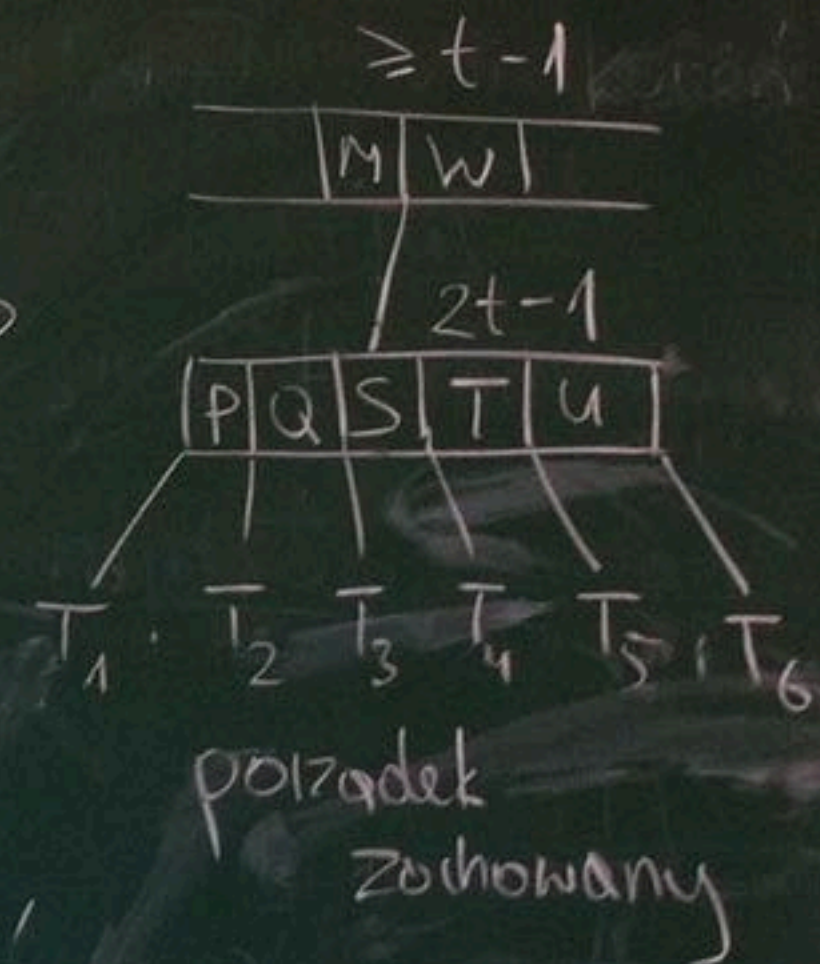 ≥ t - 1
M W
2t - 1
P Q S T U
T1 T2 T3 T4 T5, T6
porządek
zachowany